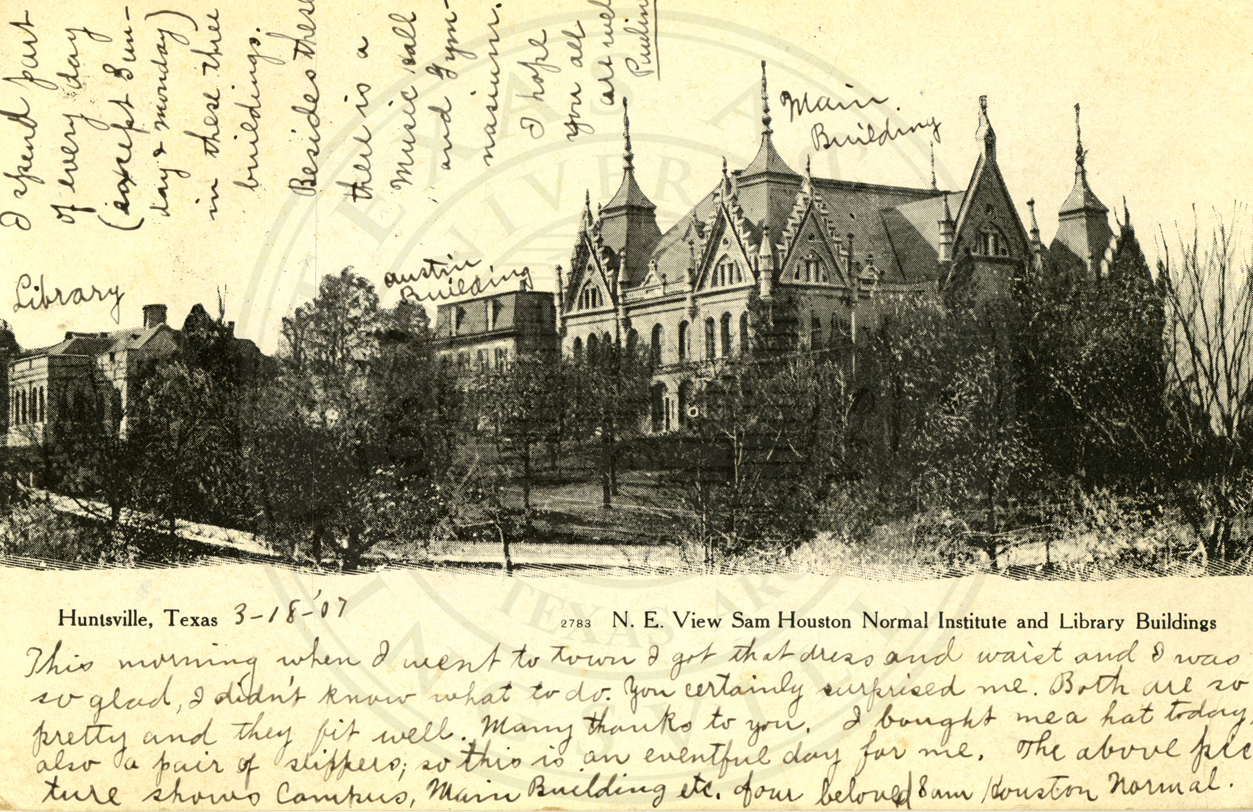 Huntsville, Texas 3-18-'07
2783 N. E. View Sam Houston Normal Institute and Library Buildings
This morning when I went to town I got that dress and waist and I was
so glad, I didn't know what to do. You certainly surprised me. Both are so
pretty and they fit well. Many thanks to you. I bought me a hat today,
also a pair of slippers; so this is an eventful day for me. The above pic
ture shows Campus, Main Building etc. of our beloved Sam Houston Normal.
I spend part
of every day
(except Sun-
day & Monday)
in these three
buildings.
Besides these
there is a
Music Hall
and Gym-
nasium.
I hope
you all
are well
Pauline
Library
Austin
Building
Main
Building